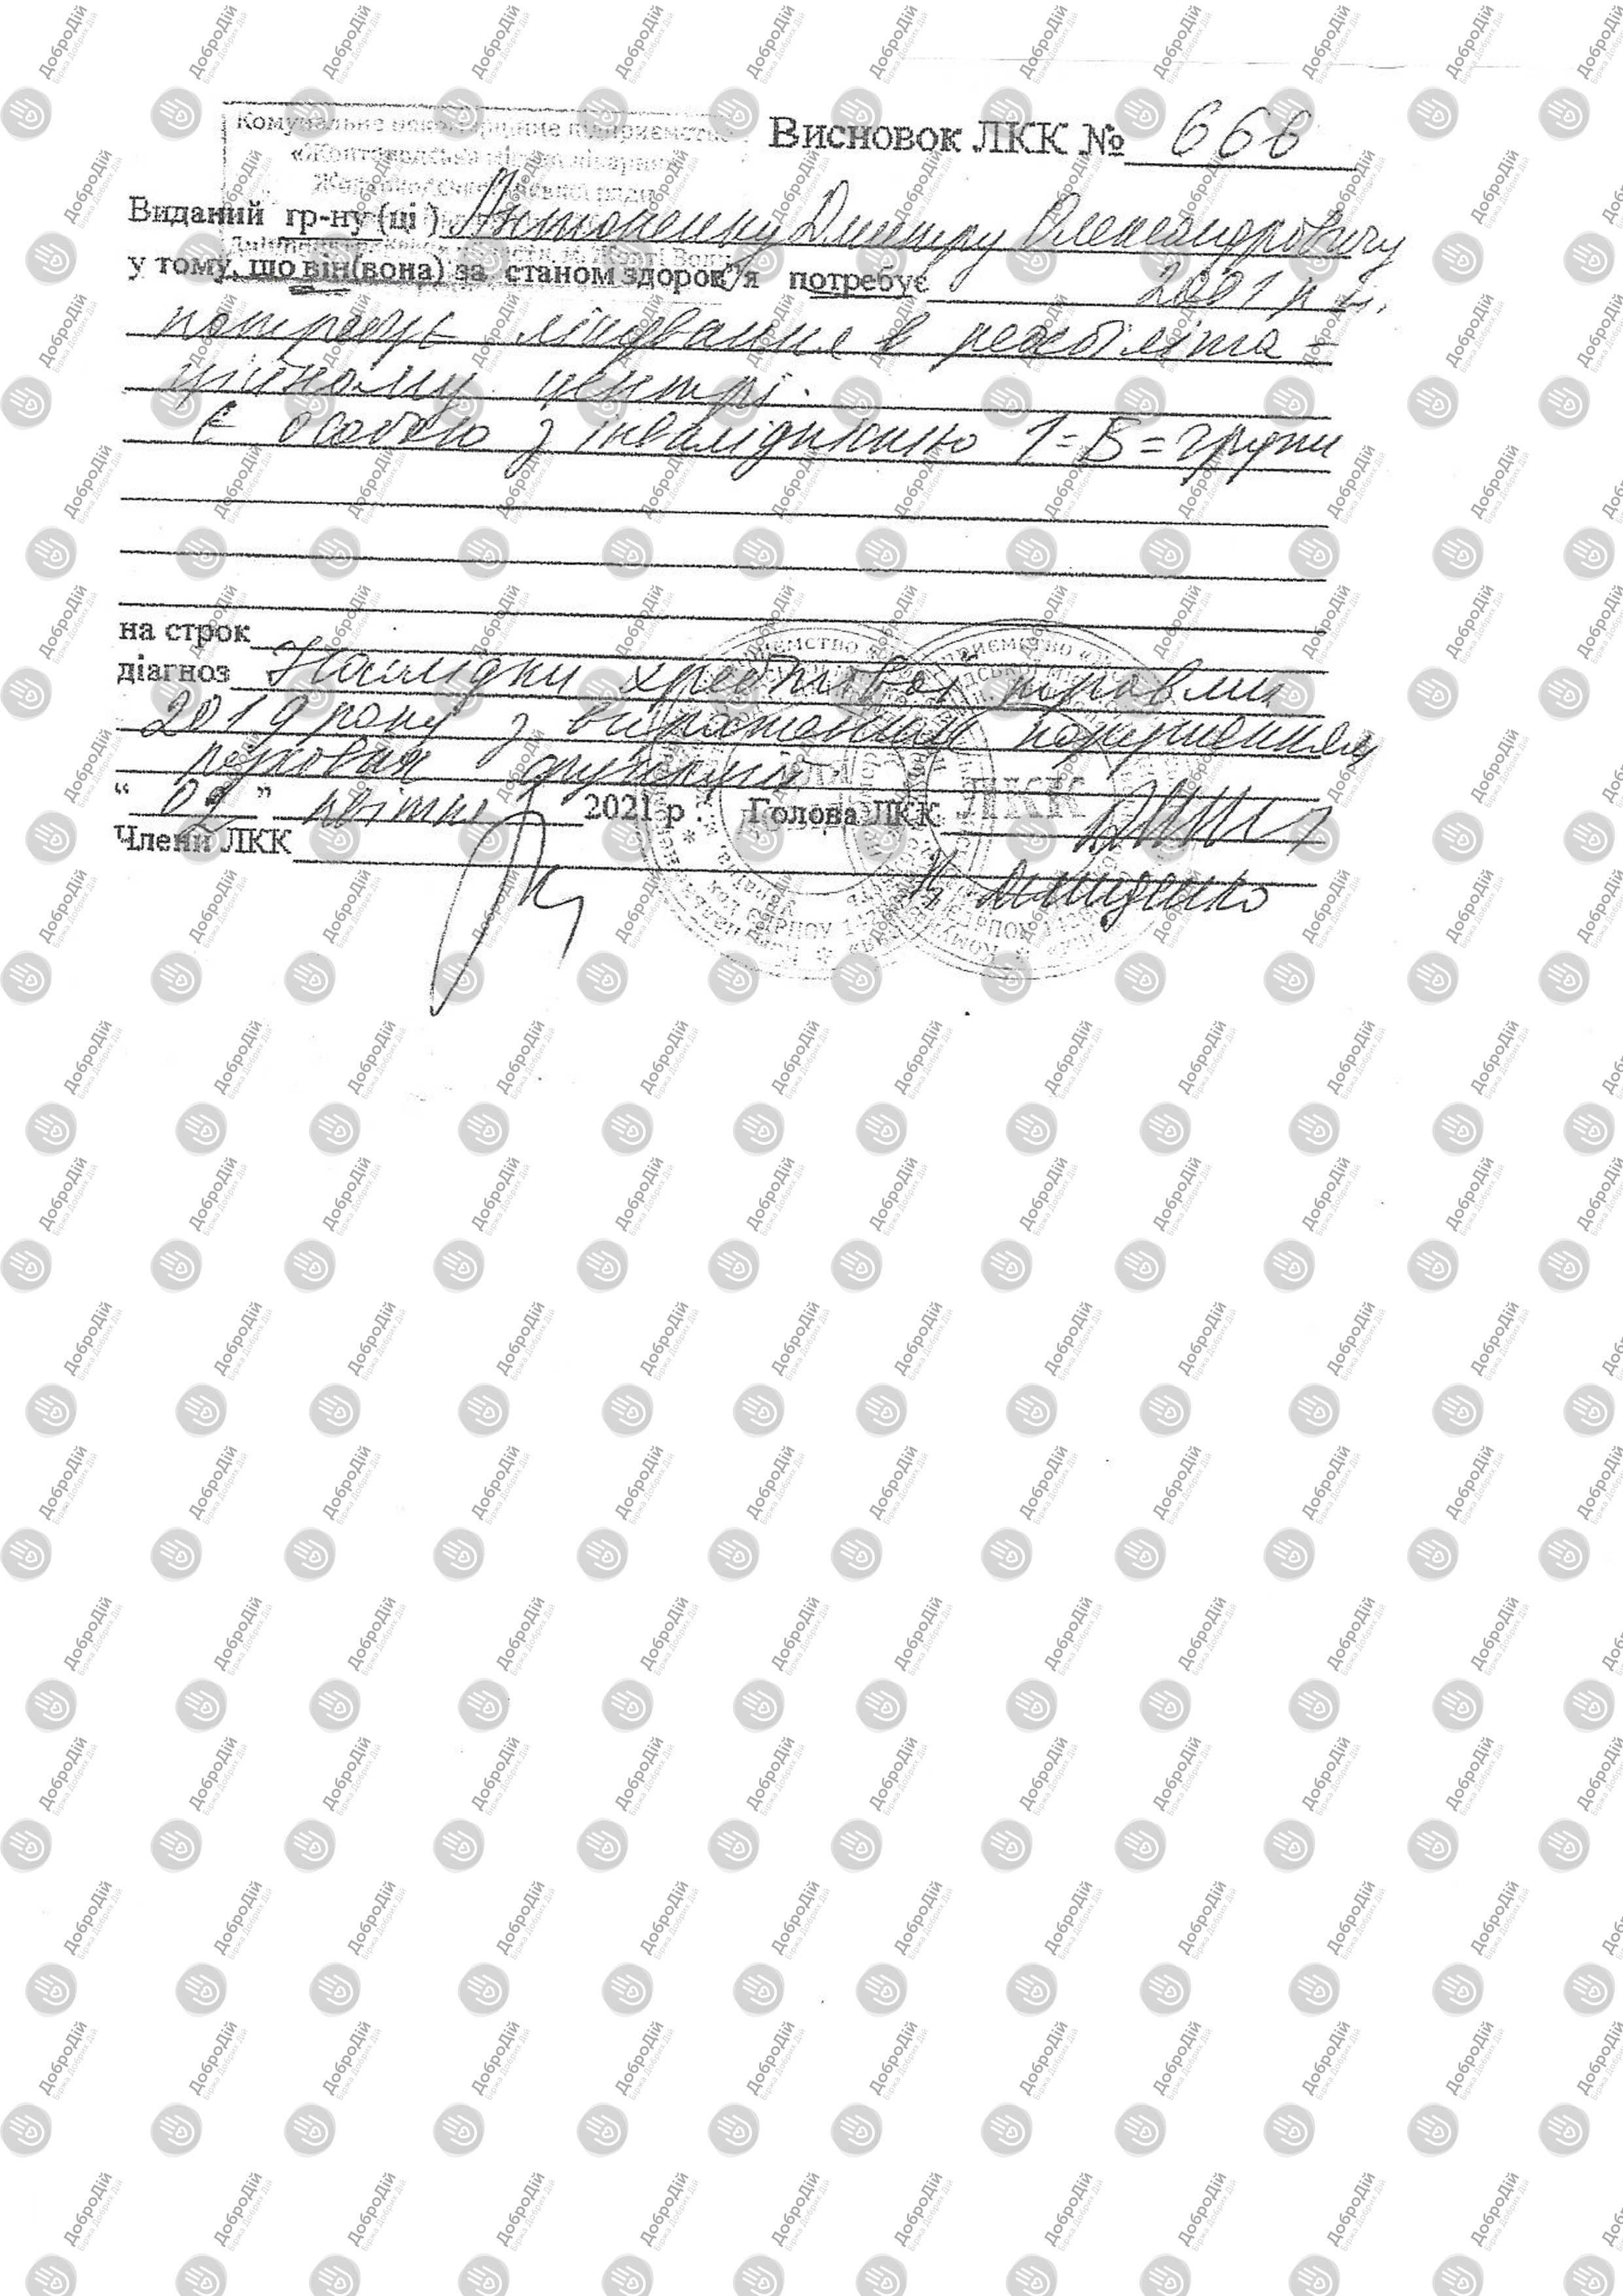 Комунальне некомерційне підприємство
«Жовтоводська міська лікарня»
Жовтоводської міської ради
Висновок ЛКК № 666
Виданий гр-ну (ці) Антоненку Дмитру Олександровичу
у тому, що він(вона) за станом здоров'я потребує 2001 р.н.
потребує лікування в реабіліта-
ційному центрі.
Є особою з інвалідністю 1=Б=групи
на строк
діагноз Наслідки хребтової травми
2019 року з вираженим порушенням
рухових функцій
“02” квітня 2021 р. Голова ЛКК
Члени ЛКК
ЛКК
ДоброДій
Біржа Добрих Дій